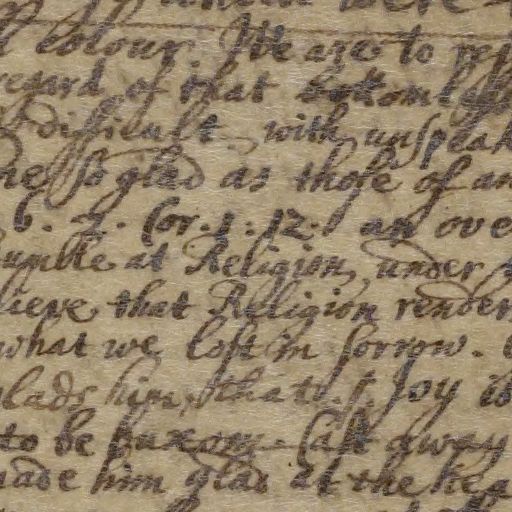 colour. We are to re
regard of that bottomless
difficult, with unspeak
ne so glad as those of an
6. 2. Cor. 1. 12. an ove
umble at Religion, under
lieve that Religion render
what we lost in sorrow.
glads him, that Joy is
to be Cast away
made him glad at the hea